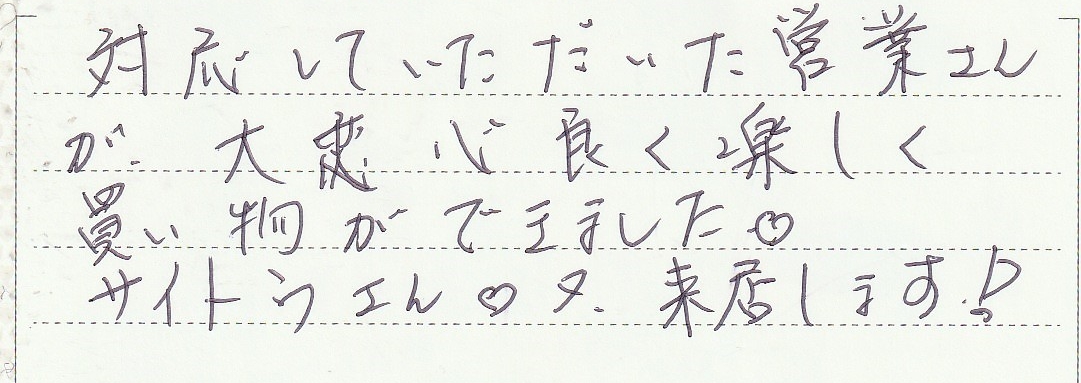 対応していただいた営業さん
が、大変心良く楽しく
買い物ができました♡
サイトウさん♡又、来店します!